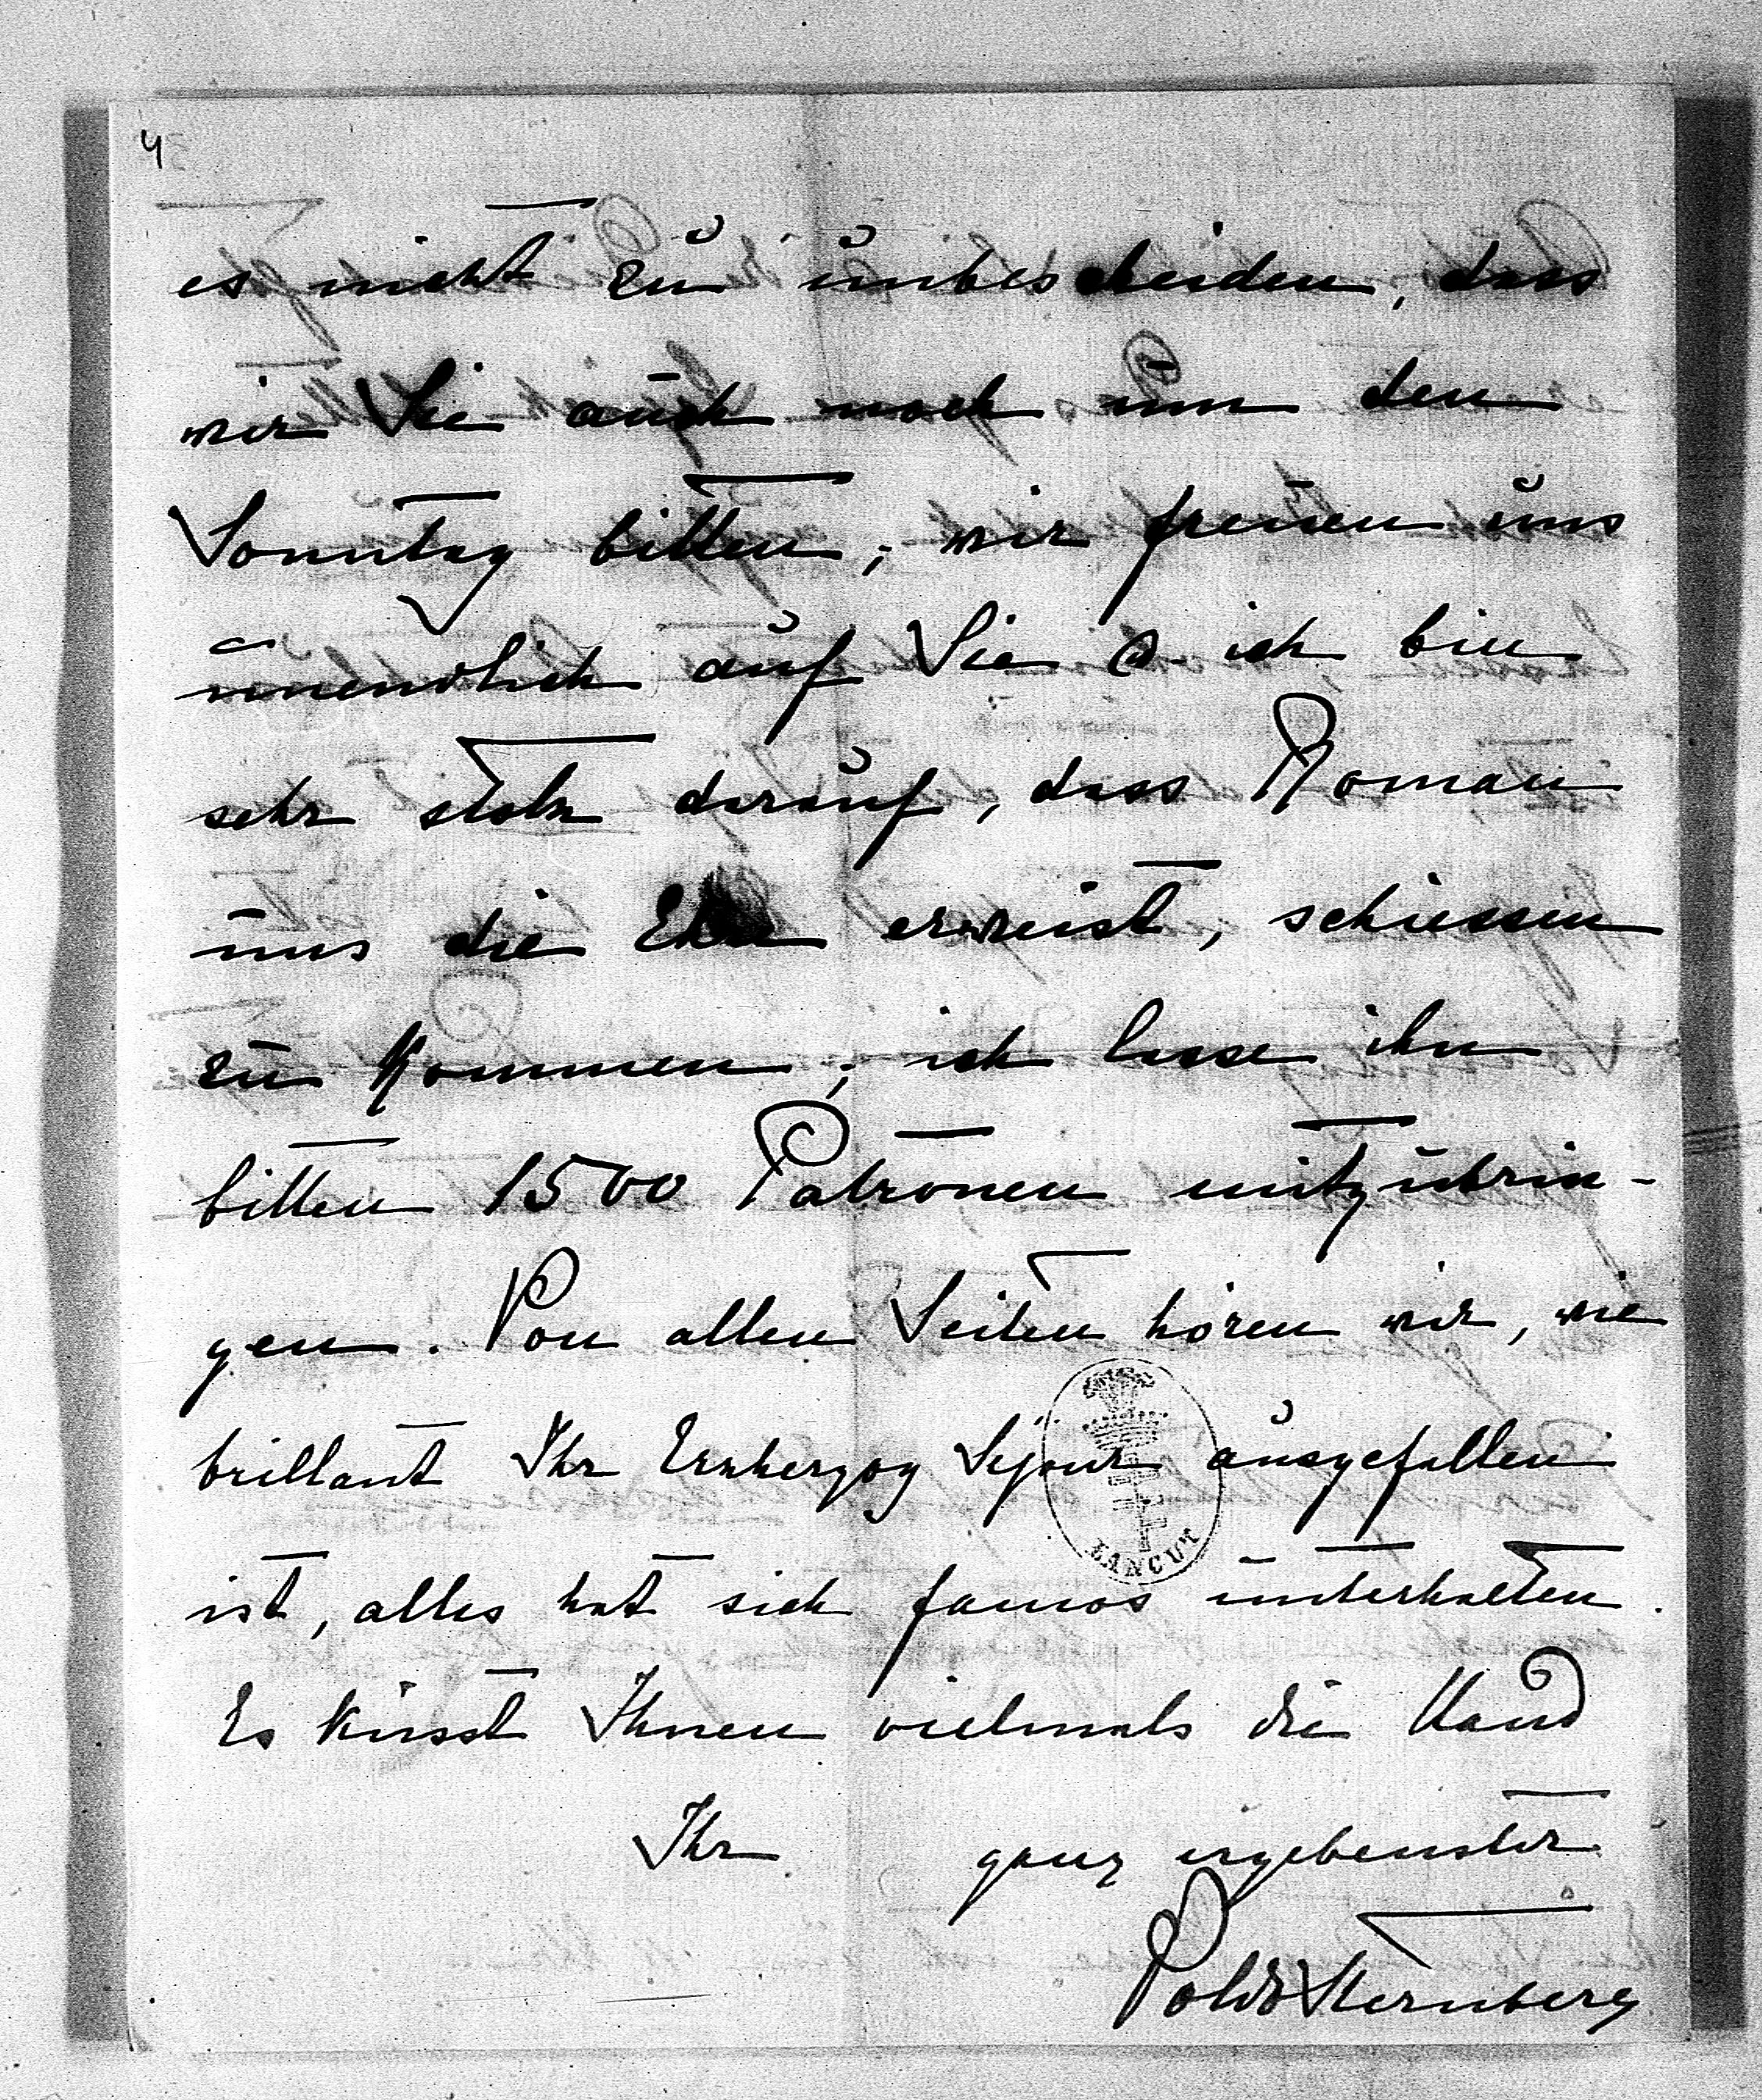 4
es nicht zu unbescheiden, dass
wir Sie auch noch um den
Sonntag bitten; wir freuen uns
unendlich auf Sie & ich bin
sehr stolz darauf, dass Roman
uns die Ehre erweist, schiessen
zu kommen; ich lasse ihn
bitten 1500 Patronen mitzubrin-
gen. Von allen Seiten hören wir, wie
brillant Ihr Erzherzog Séjour ausgefallen
ist, alles hat sich famos unterhalten.
Es küsst Ihnen vielmals die Hand
Ihr ganz ergebenster
Poldo Sternberg
ŁAŃCUT